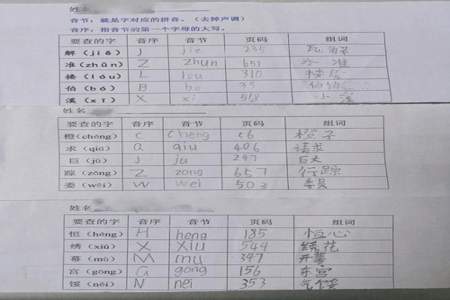 姓名
音节：就是字对应的拼音。（去掉声调）
音序：指音节的第一个字母的大写。
要查的字 音序 音节 页码 组词
解（jiě） J jie 235
准（zhǔn） Z zhun 651
楼（lóu） L lou 310
伯（bó） B bo
溪（xī） X xi 小溪
姓名
要查的字 音序 音节 页码 组词
橙（chéng） C cheng 橙子
求（qiú） Q qiu 406 请求
巨（jù） J ju 247 巨大
踪（zōng） Z zong 657 行踪
委（wěi） W wei 503 委员
姓名
要查的字 音序 音节 页码 组词
恒（héng） H heng 185 恒心
绣（xiù） X xiu 544 绣花
幕（mù） M mu 347 开幕
宫（gōng） G gong 156 东宫
馁（něi） N nei 353 气馁